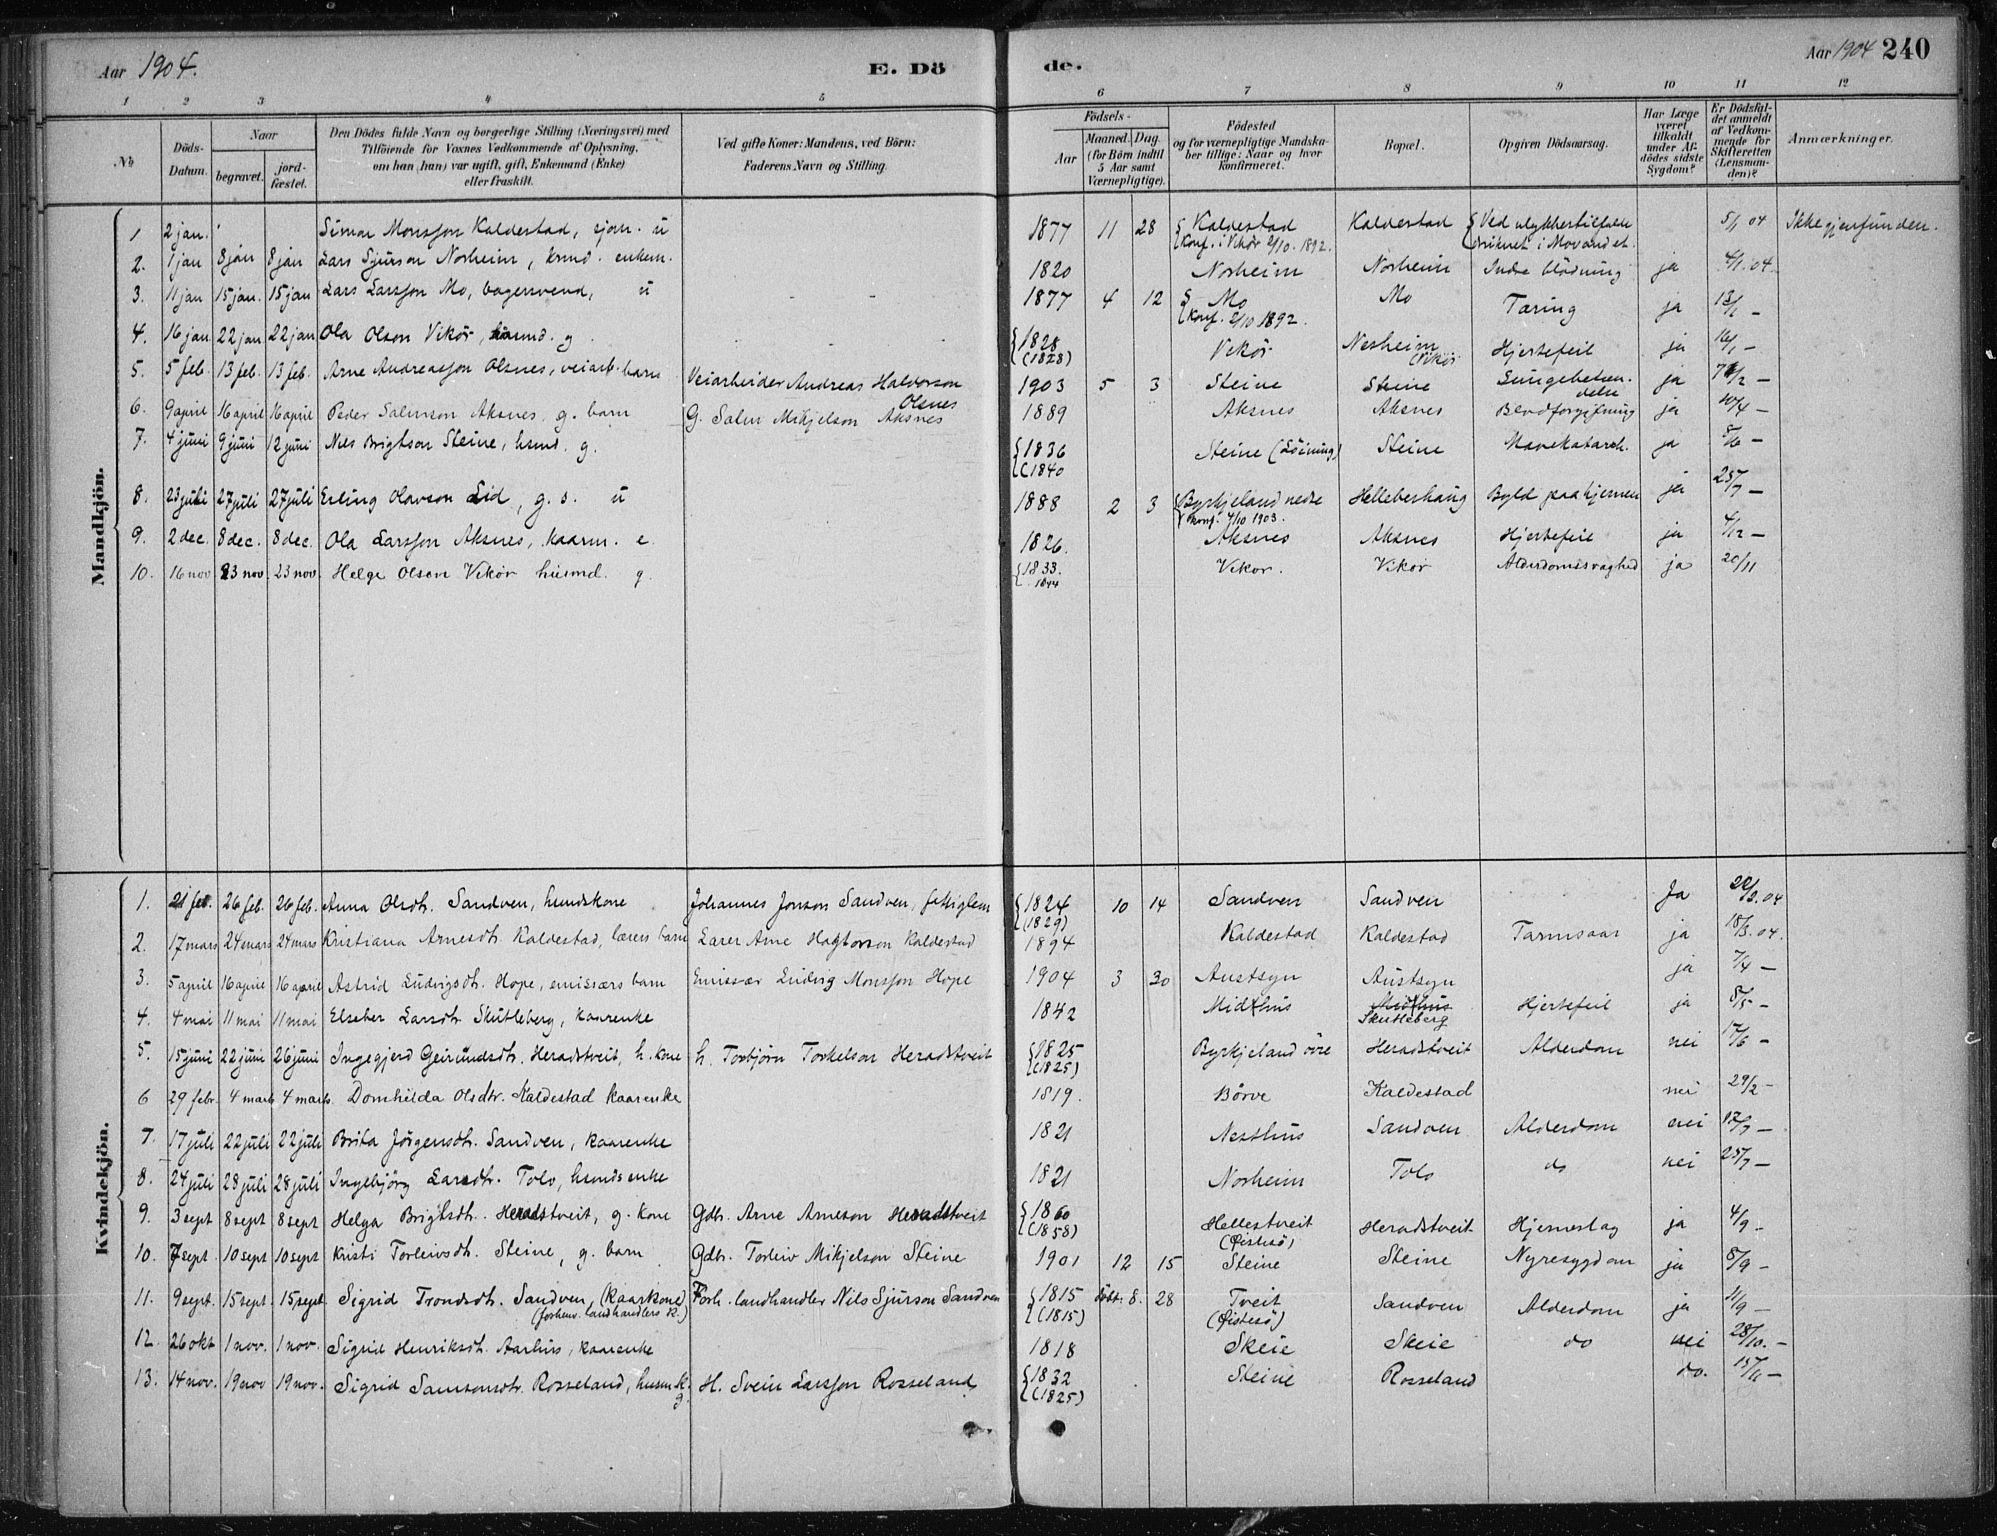 Aar 1904.
E. Dö
de.
Aar 1904 240
1 2 3 4 5 6 7 8 9 10 11 12
No
Döds-Datum.
Naar
begravet.
jord-fæstet.
Den Dödes fulde Navn og borgerlige Stilling (Næringsvei) med
Tilföiende for Voxnes Vedkommende af Oplysning,
om han (hun) var ugift, gift, Enkemand (Enke)
eller fraskilt.
Ved gifte Koner: Mandens, ved Börn:
Faderens Navn og Stilling.
Födsels-
Aar
Maaned. Dag.
(for Börn indtil
5 Aar samt
Værnepligtige).
Födested
og for værnepligtige Mandska-
ber tillige: Naar og hvor
konfirmeret.
Bopæl.
Opgiven Dödsaarsag.
Har Læge
været
tilkaldt
under Af-
dödes sidste
Sygdom?
Er Dödsfal-
det anmeldt
af Vedkom-
mende for
Skifteretten
(Lensman-
den)?
Anmærkninger.
Mandkjön.
1 2 jan. Simon Monsson Kaldestad, sjøm. u 1877 11 28 Kaldestad Konf. i Vikør 2/10. 1892. Kaldestad Ved ulykkestilfælde druknet i Movandet. 5/1 04 Ikke gjenfunden.
2. 1 jan 8 jan 8 jan Lars Sjurson Norheim, krmd. enkem. 1820 Norheim Norheim Indre blödning ja 4/1. 04.
3. 11 jan 15 jan. 15 jan Lars Larsson Mo, bagersvend, u - - 1877 4 12 Mo Konf. 2/10 1892. Mo Tæring ja 13/1 -
4. 16 jan 22 jan 22 jan Ola Olson Vikør, husmd. g. - 1828 (1828) Vikør Norheim Vikør Hjertefeil ja 16/1 -
5. 5 feb. 13 feb. 13 feb. Arne Andreasson Olsnes, veiarb. barn Veiarbeider Andreas Halvorson Olsnes 1903 5 3 Steine Steine Lungebeten-delse ja 7/2 -
6. 9 april 16 april 16 april Peder Salmson Aksnes, g. barn G. Salm Mikjelson Aksnes 1889 Aksnes Aksnes Blodforgiftning ja 10/4 -
7. 4 juni 9 juni 12 juni Nils Brigtson Steine, husmd. g. 1836 (1840 Steine (Løining) Steine Mavekatarrh. ja 8/6 -
8. 23 juli 27 juli 27 juli Erling Olavson Lid, g. s. u 1888 2 3 Byrkjeland nedre Konf. 4/10 1903. Helleberhaug Byld paa hjernen ja 25/7 -
9. 2 dec. 8 dec. 8 dec. Ola Larsson Aksnes, kaarm. e. 1826. Aksnes Aksnes Hjertefeil ja 4/12 -
10. 16 nov 23 nov. 23 nov. Helge Olson Vikør husmd. g. 1833. 1844 Vikør. Vikør Alderdomssvaghed ja 20/11
Kvindekjön.
1. 21 feb. 26 feb. 26 feb. Anna Olsdtr. Sandven, husmdskone Johannes Jonson Sandven, fattiglem 1824 (1829) 10 14 Sandven Sandven Ja 22/2. 04
2. 17 mars 24 mars 24 mars Kristiana Arnesdtr. Kaldestad, lærers barn Lærer Arne Hagtorson Kaldestad 1894 Kaldestad Kaldestad Tarmsaar ja 18/3. 04.
3. 5 april 16 april 16 april Astrid Ludvigsdtr. Hope, emissærs barn Emissær Ludvig Monsson Hope 1904 3 30 Austsyn Austsyn ja 7/4 -
4. 4 mai 11 mai 11 mai Elseber Larsdtr. Skutleberg, kaarenke 1842 Midthus Midthus Skutleberg Hjertefeil ja 8/5 -
5. 15 juni 22 juni 26 juni Ingegjerd Geirundsdtr. Heradstveit, h. kone h. Torbjørn Torkelson Heradstveit 1825 (1825) Byrkjeland øvre Heradstveit Alderdom nei 17/6 -
6 29 febr. 4 mars 4 mars. Domhilda Olsdtr. Kaldestad kaarenke 1819. Börve Kaldestad nei 29/2 -
7. 17 juli 22 juli 22 juli Brita Jörgensdtr. Sandven, kaarenke 1821 Nesthus Sandven Alderdom nei 17/7 -
8. 24 juli 28 juli 28 juli Ingebjörg Larsdtr. Tolo, husmdsenke 1821 Norheim Tolo do nei 25/7 -
9. 3 sept 8 sept 8 sept Helga Brigtsdtr. Heradstveit, g. kone Gdbr. Arne Arneson Heradstveit 1860 (1858) Hellestveit (Øistesø) Heradstveit Hjerneslag ja 4/9 -
10. 7 sept 10 sept 10 sept Kristi Torleivsdtr. Steine, g. barn Gdbr. Torleiv Mikjelson Steine 1901 12 15 Steine Steine Nyresygdom ja 8/9 -
11. 9 sept. 15 sept. 15 sept Sigrid Trondsdtr. Sandven, (kaarkone) (forhenv. landhandlers k.) Forh. landhandler Nils Sjurson Sandven 1815 (1815) döbt. 8. 28 Tveit (Øistesø) Sandven Alderdom ja 11/9 -
12. 26 okt 1 nov. 1 nov. Sigrid Henriksdtr. Aarhus, kaarenke 1818 Skeie Skeie do nei 28/10. -
13. 14 nov. 19 nov 19 nov. Sigrid Samsonsdtr. Rosseland, husm. k. g. H. Svein Larsson Rosseland 1832 (1825) Steine Rosseland do. 15/11 -